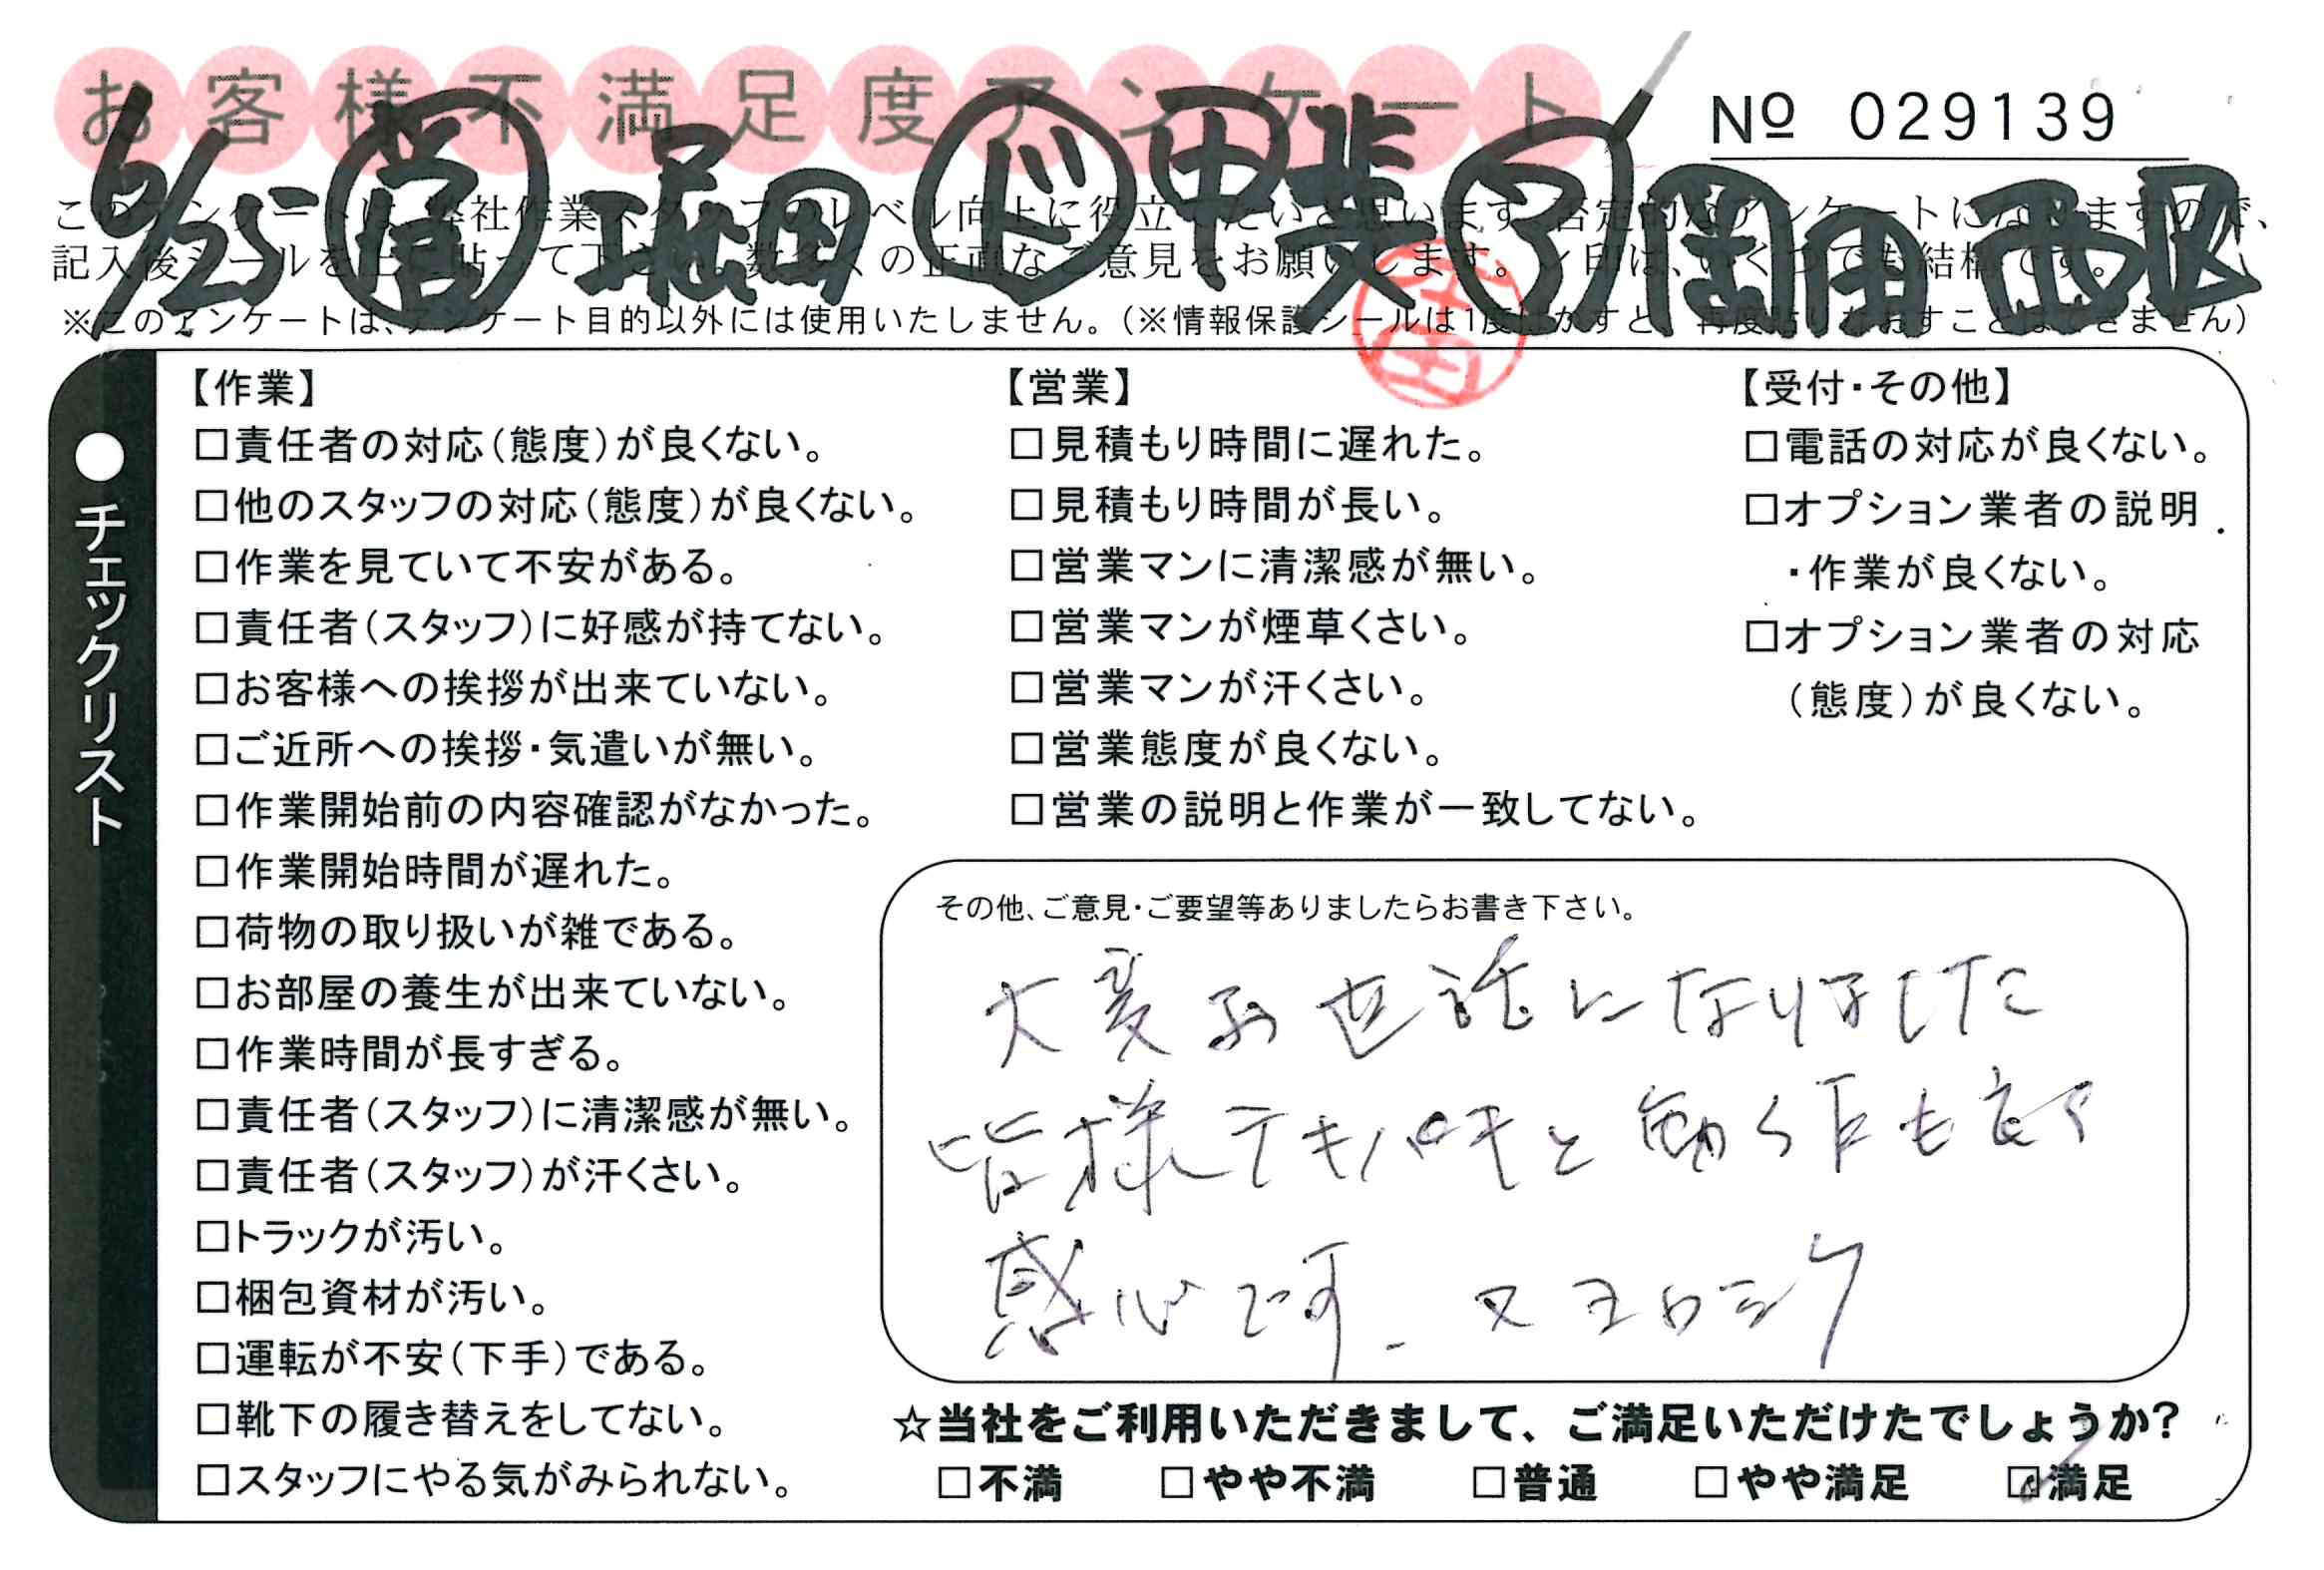 お客様不満足度アンケート
Nº 029139
6/25 営 堀田 ド 甲斐 ア 岡田 西区
このアンケートは、弊社作業スタッフのレベル向上に役立てたいと思います。否定的なアンケートになりますので、
記入後シールを上に貼って下さい。数多くの正直なご意見をお願いします。レ印は、いくつでも結構です。
※このアンケートは、アンケート目的以外には使用いたしません。（※情報保護シールは1度はがすと、再度貼りなおすことはできません）
●チェックリスト
【作業】
□責任者の対応（態度）が良くない。
□他のスタッフの対応（態度）が良くない。
□作業を見ていて不安がある。
□責任者（スタッフ）に好感が持てない。
□お客様への挨拶が出来ていない。
□ご近所への挨拶・気遣いが無い。
□作業開始前の内容確認がなかった。
□作業開始時間が遅れた。
□荷物の取り扱いが雑である。
□お部屋の養生が出来ていない。
□作業時間が長すぎる。
□責任者（スタッフ）に清潔感が無い。
□責任者（スタッフ）が汗くさい。
□トラックが汚い。
□梱包資材が汚い。
□運転が不安（下手）である。
□靴下の履き替えをしてない。
□スタッフにやる気がみられない。
【営業】
□見積もり時間に遅れた。
□見積もり時間が長い。
□営業マンに清潔感が無い。
□営業マンが煙草くさい。
□営業マンが汗くさい。
□営業態度が良くない。
□営業の説明と作業が一致してない。
【受付・その他】
□電話の対応が良くない。
□オプション業者の説明
・作業が良くない。
□オプション業者の対応
（態度）が良くない。
その他、ご意見・ご要望等ありましたらお書き下さい。
大変お世話になりました
皆様テキパキと動く
も良く
感心です。又ヨロシク
☆当社をご利用いただきまして、ご満足いただけたでしょうか？
□不満 □やや不満 □普通 □やや満足 ☑満足